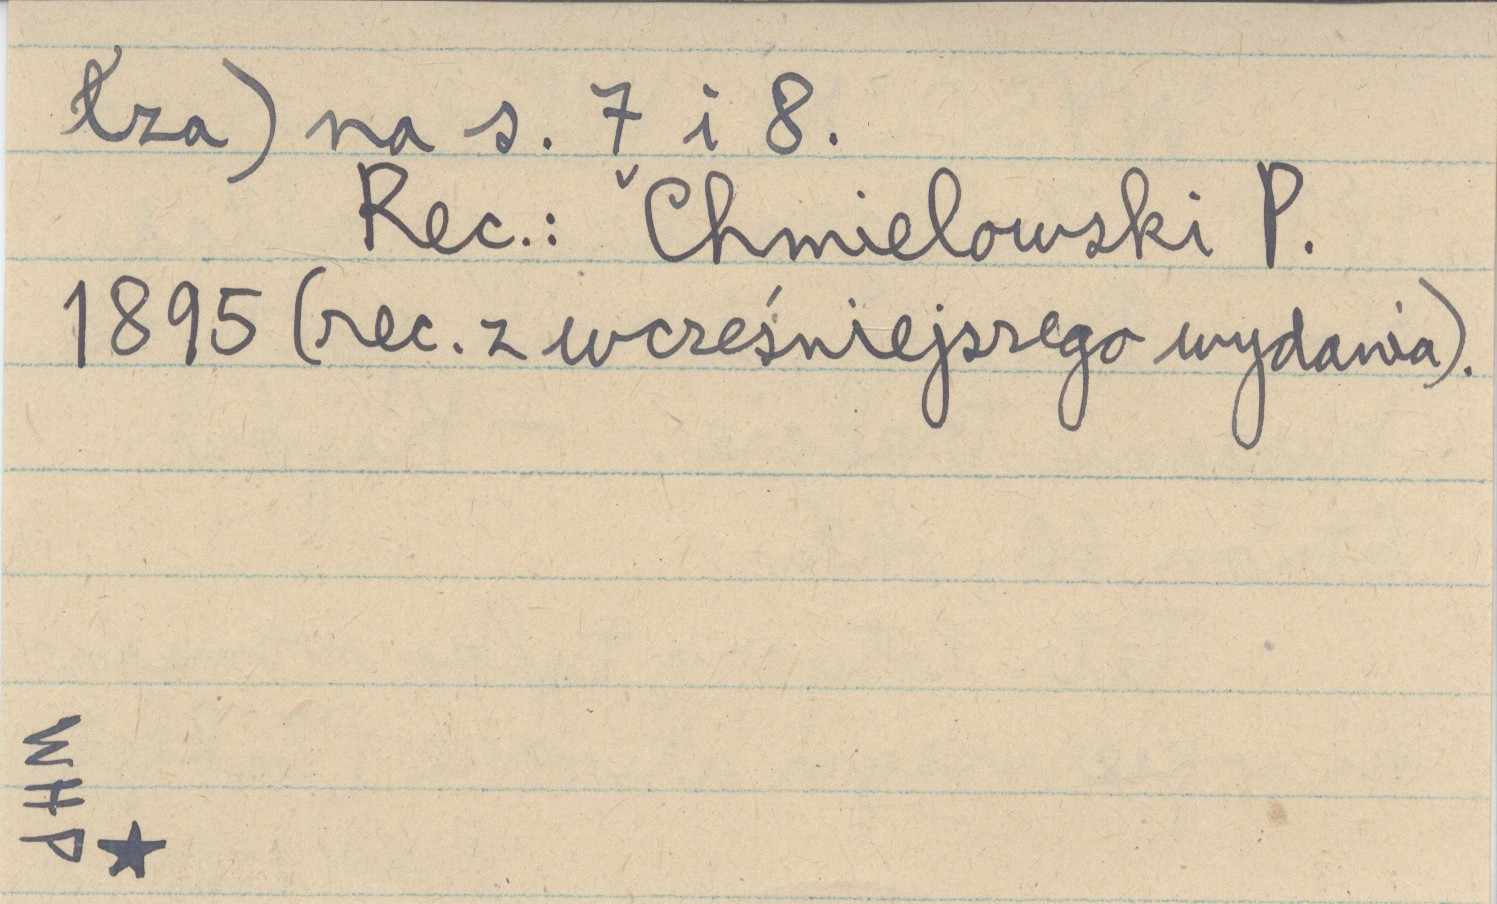 łza) na s. 7 i 8.
Rec.: ˇChmielowski P.
1895 (rec. z wcześniejszego wydania).
WHP ★